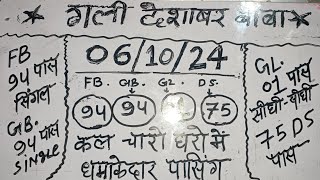 * गली देशावर बाबा *
FB
94 पास
सिंगल
GB.
94 पास
SINGLE
06/10/24
FB. GB. GL. DS.
94 94 75
कल चारो घरो में
धमाकेदार पासिंग
GL.
01 पास
सीधी-सीधी
75 DS
पास